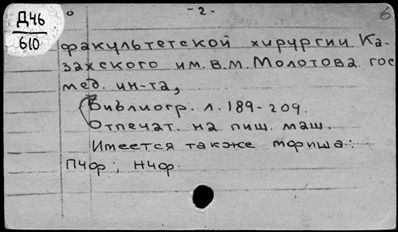 Д46
610
-2-
б
факультетской хирургии Ка-
захского им. В.М. Молотова гос
мед. ин-та,
Библиогр. л. 189-209.
Отпечат. на пиш. маш.
Имеется также мфиша:
ПЧФ; НЧФ.